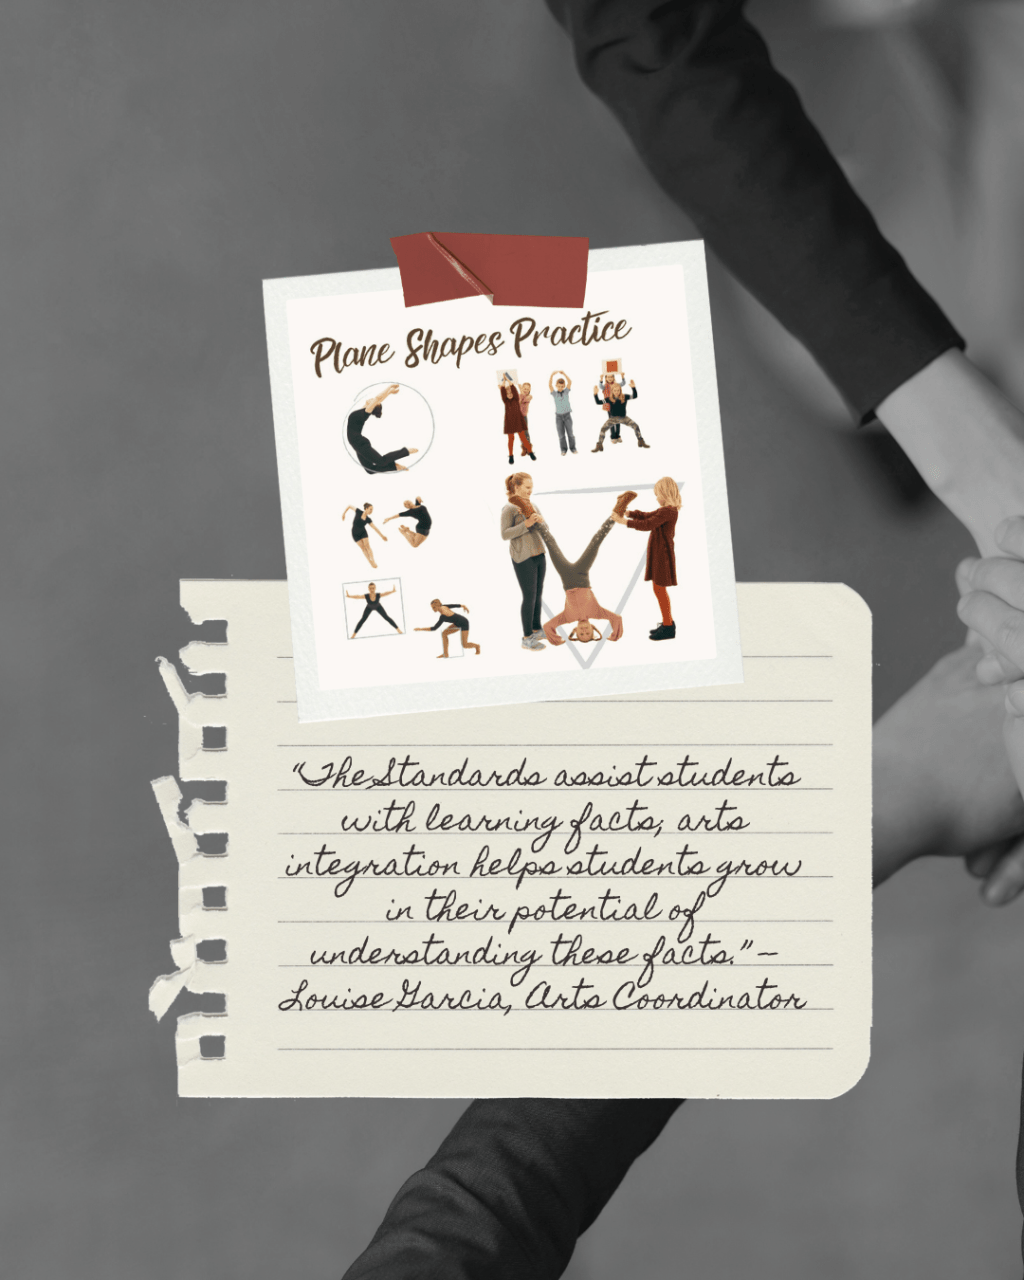 Plane Shapes Practice
“The Standards assist students
with learning facts; arts
integration helps students grow
in their potential of
understanding these facts.” –
Louise Garcia, Arts Coordinator